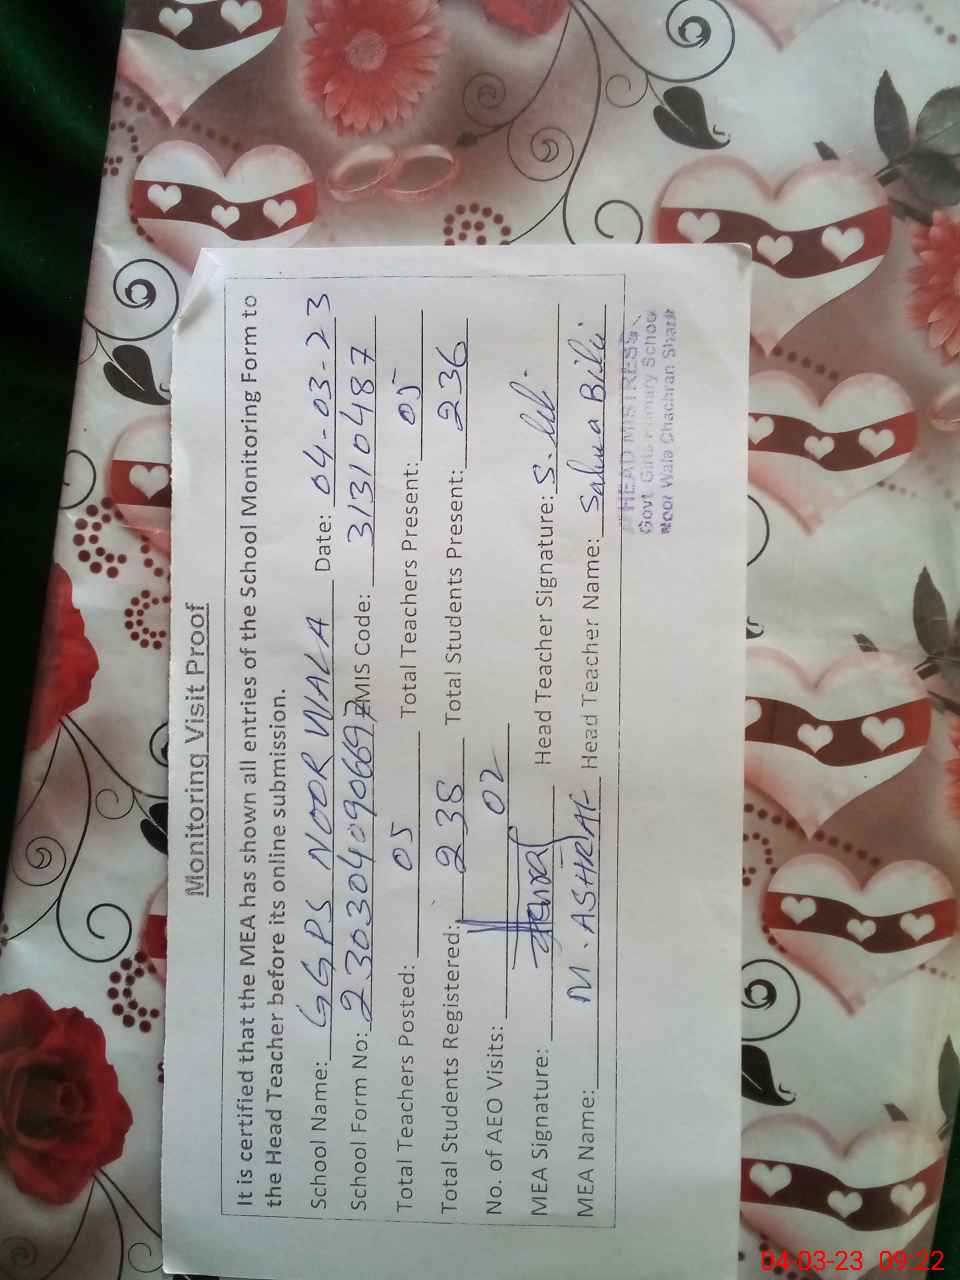 Monitoring Visit Proof
It is certified that the MEA has shown all entries of the School Monitoring Form to
the Head Teacher before its online submission.
School Name: GGPS NOOR WALA Date: 04-03-23
School Form No: 2303040906697 EMIS Code: 31310487
Total Teachers Posted: 05 Total Teachers Present: 05
Total Students Registered: 238 Total Students Present: 236
No. of AEO Visits: 02
MEA Signature: Head Teacher Signature: S.
MEA Name: M. ASHRAF Head Teacher Name: Salma Bibi
HEAD MISTRESS
Govt. Girls Primary School
Noor Wala Chachran Sharif
04-03-23 09:22